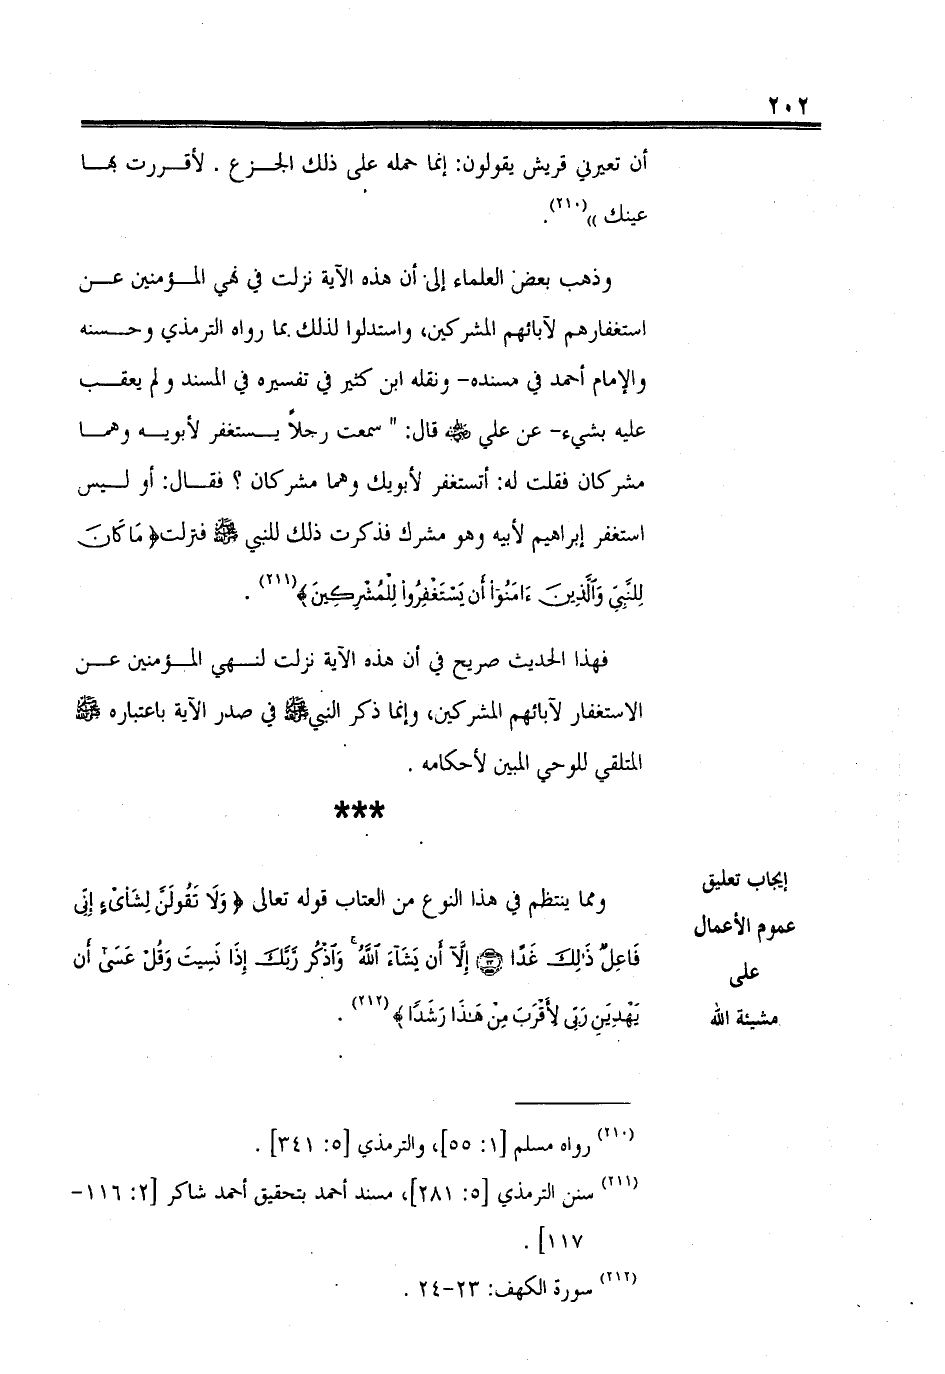 ٢٠٢
أن تعيرني قريش يقولون: إنما حمله على ذلك الجـزع . لأقـررت بهـا
عينك »(٢١٠).
وذهب بعض العلماء إلى أن هذه الآية نزلت في نهي المـؤمنين عـن
استغفارهم لآبائهم المشركين، واستدلوا لذلك بما رواه الترمذي وحـسنه
والإمام أحمد في مسنده- ونقله ابن كثير في تفسيره في المسند ولم يعقـب
عليه بشيء- عن علي ﷺ قال: " سمعت رجلاً يـستغفر لأبويـه وهمـا
مشركان فقلت له: أتستغفر لأبويك وهما مشركان ؟ فقـال: أو لـيس
استغفر إبراهيم لأبيه وهو مشرك فذكرت ذلك للنبي ﷺ فنزلت﴿ مَا كَانَ
لِلنَّبِيِّ وَٱلَّذِينَ ءَامَنُوٓا۟ أَن يَسْتَغْفِرُوا۟ لِلْمُشْرِكِينَ﴾(٢١١) .
فهذا الحديث صريح في أن هذه الآية نزلت لنـهي المـؤمنين عـن
الاستغفار لآبائهم المشركين، وإنما ذكر النبي ﷺ في صدر الآية باعتباره ﷺ
المتلقي للوحي المبين لأحكامه .
***
إيجاب تعليق
عموم الأعمال
على
مشيئة الله
ومما ينتظم في هذا النوع من العتاب قوله تعالى ﴿ وَلَا تَقُولَنَّ لِشَا۟ىْءٍ إِنِّى
فَاعِلٌ ذَٰلِكَ غَدًا ٢٣ إِلَّآ أَن يَشَآءَ ٱللَّهُ ۚ وَٱذْكُر رَّبَّكَ إِذَا نَسِيتَ وَقُلْ عَسَىٰٓ أَن
يَهْدِيَنِ رَبِّى لِأَقْرَبَ مِنْ هَـٰذَا رَشَدًا ﴾(٢١٢) .
(٢١٠) رواه مسلم [١: ٥٥]، والترمذي [٥: ٣٤١] .
(٢١١) سنن الترمذي [٥: ٢٨١]، مسند أحمد بتحقيق أحمد شاكر [٢: ١١٦-
١١٧] .
(٢١٢) سورة الكهف: ٢٣-٢٤ .